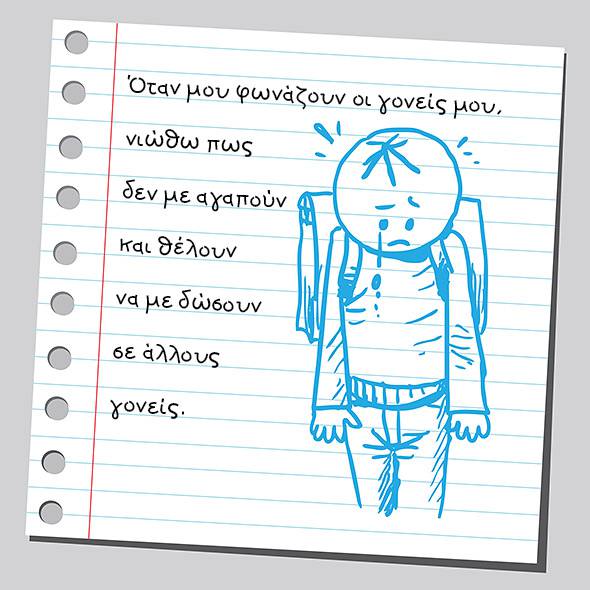 Όταν μου φωνάζουν οι γονείς μου,
νιώθω πως
δεν με αγαπούν
και θέλουν
να με δώσουν
σε άλλους
γονείς.